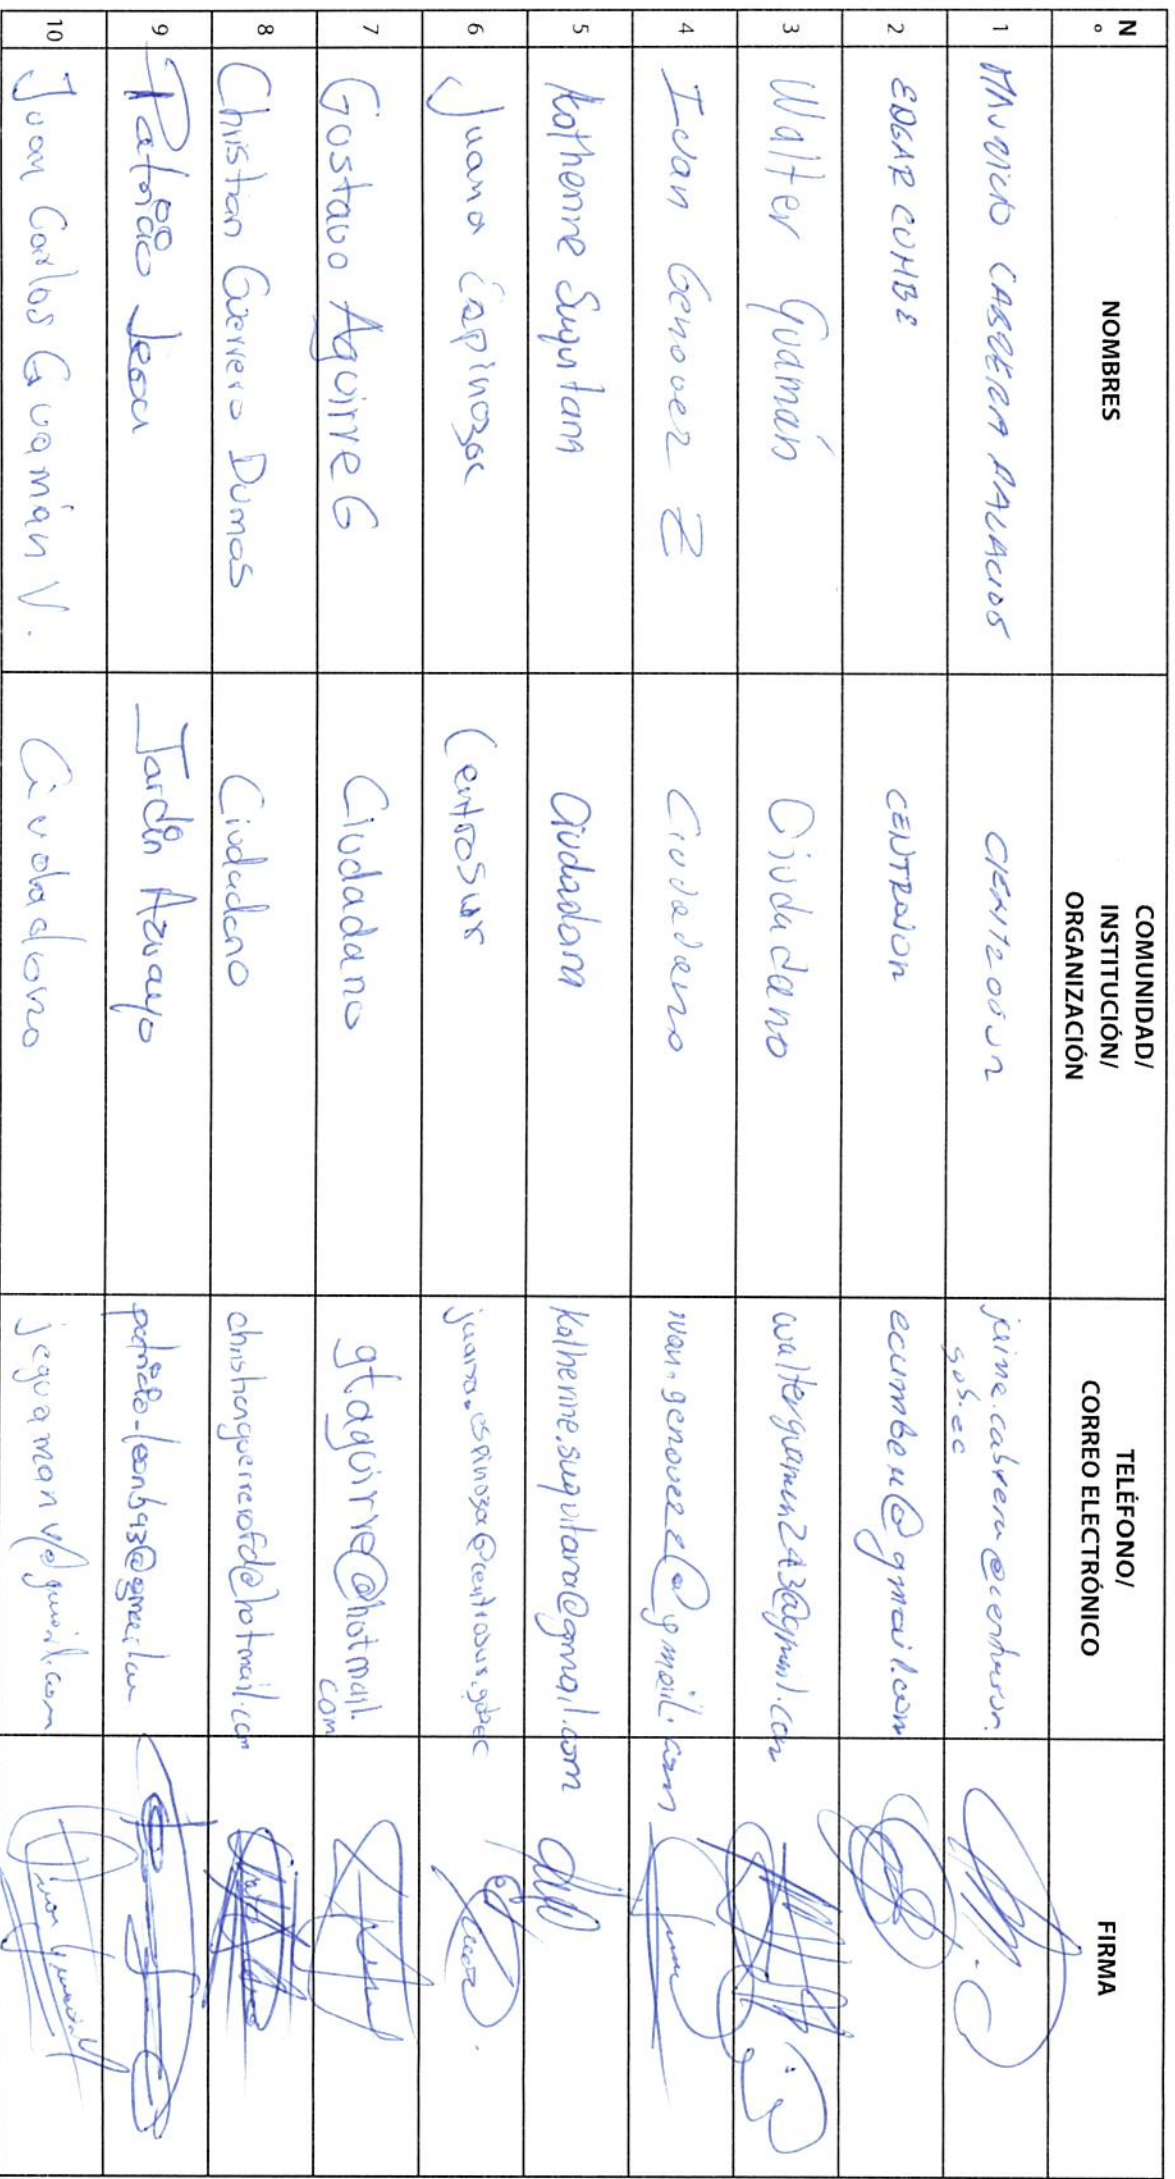 N° NOMBRES COMUNIDAD/ INSTITUCIÓN/ ORGANIZACIÓN TELÉFONO/ CORREO ELECTRÓNICO FIRMA
1 MAURICIO CABRERA PALACIOS CENTROSUR jaime.cabrera@centrosur.gob.ec
2 EDGAR CUMBE CENTROSUR ecumbeu@gmail.com
3 Walter Guamán Ciudadano walterguamen243@gmail.com
4 Ivan Genovez Z Ciudadano ivan.genovezz@gmail.com
5 Katherine Suquitana Ciudadana katherine.suquitana@gmail.com
6 Juana Espinoza Centrosur juana.espinoza@centrosur.gob.ec
7 Gustavo Aguirre G Ciudadano gtaguirre@hotmail.com
8 Christian Guerrero Dumas Ciudadano christianguerrerofd@hotmail.com
9 Patricio Jardín Azuayo
10 Juan Carlos Guamán V. Ciudadano jcguamanv@gmail.com